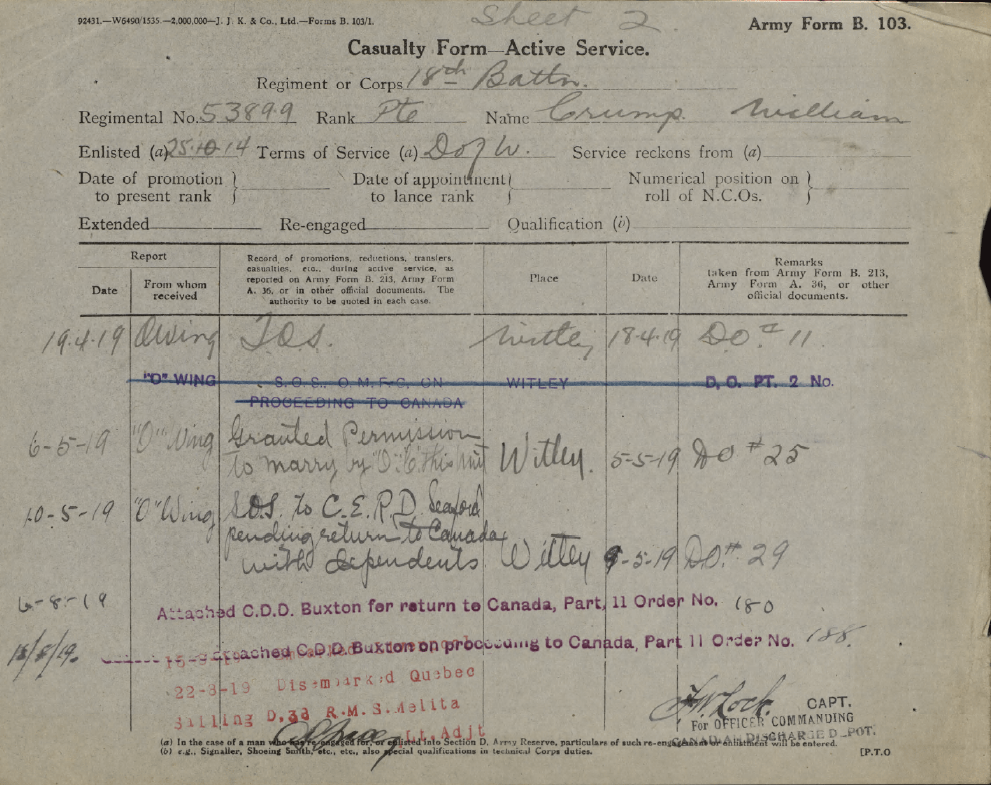 92431.—W6490/1535.—2,000,000—J. J. K. & Co., Ltd.—Forms B. 103/1.
Sheet 2
Army Form B. 103.
Casualty Form—Active Service.
Regiment or Corps 18th Battn.
Regimental No. 53899 Rank Pte Name Crump. William
Enlisted (a) 25.10.14 Terms of Service (a) D of W. Service reckons from (a)
Date of promotion to present rank } Date of appointment to lance rank } Numerical position on roll of N.C.Os. }
Extended Re-engaged Qualification (b)
Report
Date From whom received Record of promotions, reductions, transfers, casualties, etc., during active service, as reported on Army Form B. 213, Army Form A. 36, or in other official documents. The authority to be quoted in each case. Place Date Remarks taken from Army Form B. 213, Army Form A. 36, or other official documents.
19.4.19 O Wing TOS. Witley 18-4-19 DO # 11
"O" WING S.O.S. O.M.F.C. ON WITLEY D.O. PT. 2 No.
PROCEEDING TO CANADA
6-5-19 "O" Wing Granted Permission
to marry by O.C. this unit Witley. 5-5-19 DO # 25
10-5-19 "O" Wing S.O.S. To C.E.P.D. Seaford
pending return to Canada
with dependents Witley 9-5-19 DO # 29
6-8-19 Attached C.D.D. Buxton for return to Canada, Part, 11 Order No. 180
15/8/19. Attached C.D.D. Buxton on proceeding to Canada, Part 11 Order No. 188.
22-8-19 Disembarked Quebec
Sailing D.3d R.M.S. Melita
Lt. Adjt
CAPT.
For OFFICER COMMANDING
CANADIAN DISCHARGE DEPOT.
(a) In the case of a man who has re-engaged for, or enlisted into Section D. Army Reserve, particulars of such re-engagement or enlistment will be entered.
(b) e.g., Signaller, Shoeing Smith, etc., etc., also special qualifications in technical Corps duties.
[P.T.O